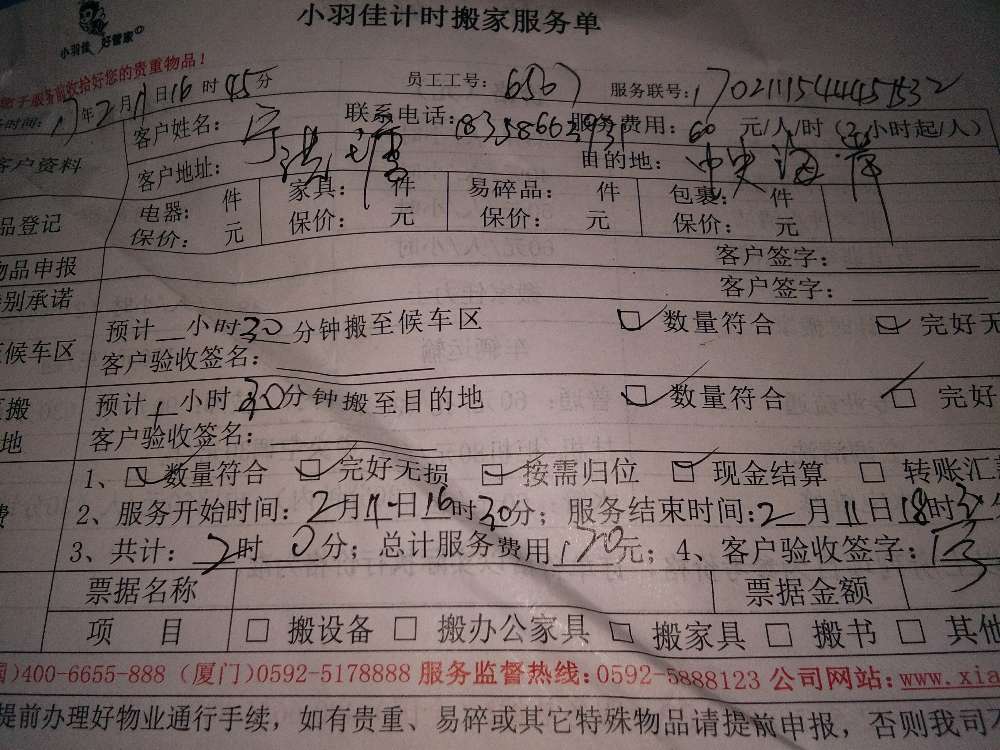 小羽佳计时搬家服务单
小羽佳 好管家
服务前收拾好您的贵重物品!
时间: 17年2月11日16时45分 员工工号: 6567 服务联号: 1702111544451532
客户资料 客户姓名: 宁 联系电话: 服务费用: 60 元/人/时 (2小时起/人)
客户地址: 目的地: 中央海岸
品登记 电器: 件 家具: 件 易碎品: 件 包裹: 件
保价: 元 保价: 元 保价: 元 保价: 元
物品申报 客户签字:
别承诺 客户签字:
候车区 预计 小时30分钟搬至候车区 数量符合 完好无
客户验收签名:
搬 预计1小时30分钟搬至目的地 数量符合 完好
地 客户验收签名:
1、 数量符合 完好无损 按需归位 现金结算 转账汇
费 2、服务开始时间: 2月11日16时30分; 服务结束时间: 2月11日18时30
3、共计: 2时0分; 总计服务费用170元; 4、客户验收签字:
票据名称 票据金额
项 目 搬设备 搬办公家具 搬家具 搬书 其他
)400-6655-888 (厦门)0592-5178888 服务监督热线: 0592-5888123 公司网站: www.xia
提前办理好物业通行手续, 如有贵重、易碎或其它特殊物品请提前申报, 否则我司不